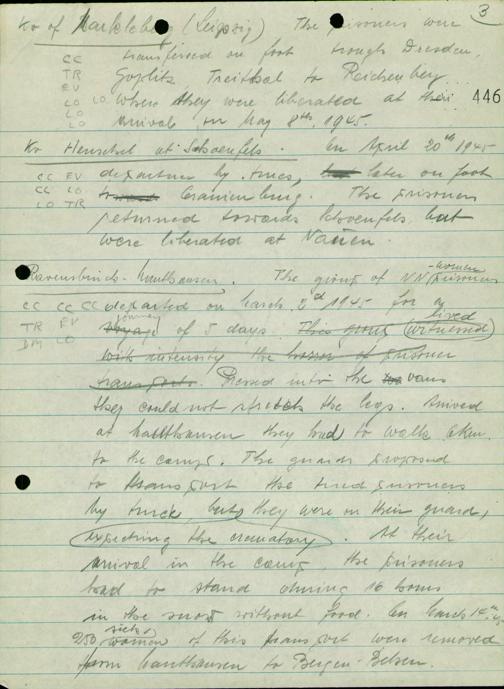 3
Ko of Markleberg (Leipzig) The prisoners were
CC transferred on foot trough Dresden,
TR to Reichenberg
EV
LO LO where they were liberated at their 446
LO
LO arrival on May 8th, 1945.
Ko Henschel at On April 20th 1945
CC EV departure by later on foot
CC LO Oranienburg. The prisoners
LO TR returned towards but
were liberated at Nauen.
Ravensbrück-Mauthausen. The group of NN women prisoners
CC CC CC departed on March 2d 1945 for a
TR EV voyage journey of 5 days. This group lived (witnessed)
DM LO with intensity the horror of prisoner
transports. Pressed into the vans
they could not stretch the legs. Arrived
at Mauthausen they had to walk
to the camp. The guards proposed
to transport the tired prisoners
by truck, but they were on their guard,
expecting the crematory. At their
arrival in the camp, the prisoners
had to stand during 16 hours
in the snow without food. On March
250 sick women of this transport were removed
from Mauthausen to Bergen-Belsen.